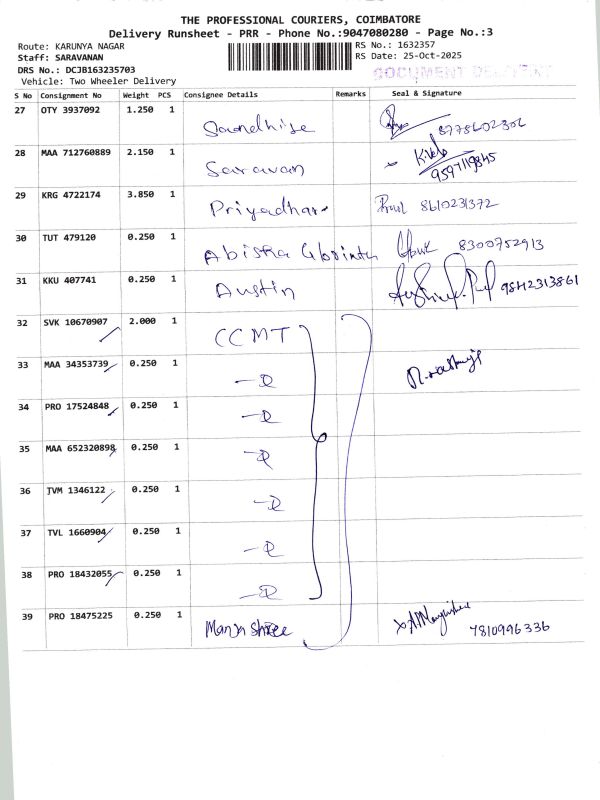 THE PROFESSIONAL COURIERS, COIMBATORE
Delivery Runsheet - PRR - Phone No.:9047080280 - Page No.:3
Route: KARUNYA NAGAR RS No.: 1632357
Staff: SARAVANAN RS Date: 25-Oct-2025
DRS No.: DCJB163235703
Vehicle: Two Wheeler Delivery
S No Consignment No Weight PCS Consignee Details Remarks Seal & Signature
27 OTY 3937092 1.250 1
8778602306
28 MAA 712760889 2.150 1 Saravan
9597119845
29 KRG 4722174 3.850 1 Priyadhar
8610231372
30 TUT 479120 0.250 1 Abisha
8300752913
31 KKU 407741 0.250 1 Austin
9842313861
32 SVK 10670907 2.000 1 CCMT
33 MAA 34353739 0.250 1
34 PRO 17524848 0.250 1
35 MAA 652320898 0.250 1
36 TVM 1346122 0.250 1
37 TVL 1660904 0.250 1
38 PRO 18432055 0.250 1
39 PRO 18475225 0.250 1 Manju Shree
7810996336